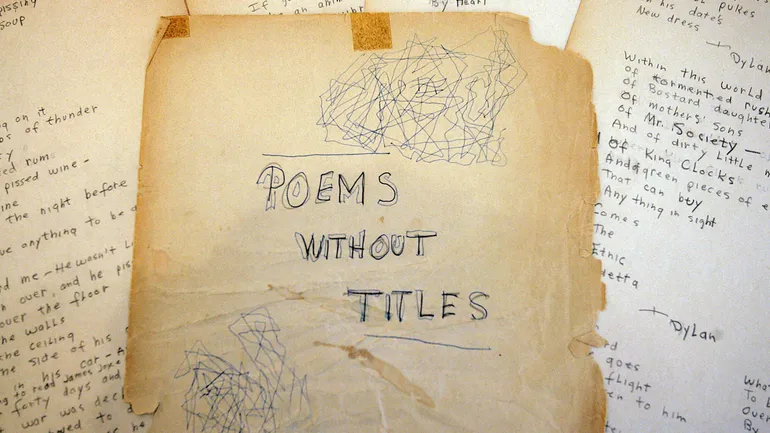 pissing
soup
ng on it
s of thunder
ed rum
pissed wine-
ine
the night before
ve anything to be a
d me - He wasn't L
n over, and he pis
over the floor
the walls
the ceiling
he side of his
in his car - A
ng to read James Joyce
forty days and
war was dec
oved to d
he
By Heart
POEMS
WITHOUT
TITLES
pukes
on his date's
New dress
Dylan
Within this world
of tormented rush
of Bastard daughter
Of mothers' sons
of Mr. Society -
And of dirty Little
Of King Clocks
And green pieces of
That can buy
Anything in sight
Comes
The
Ethic
detta
Dylan
rd
goes
flight
en to him
What
To b
Over
By